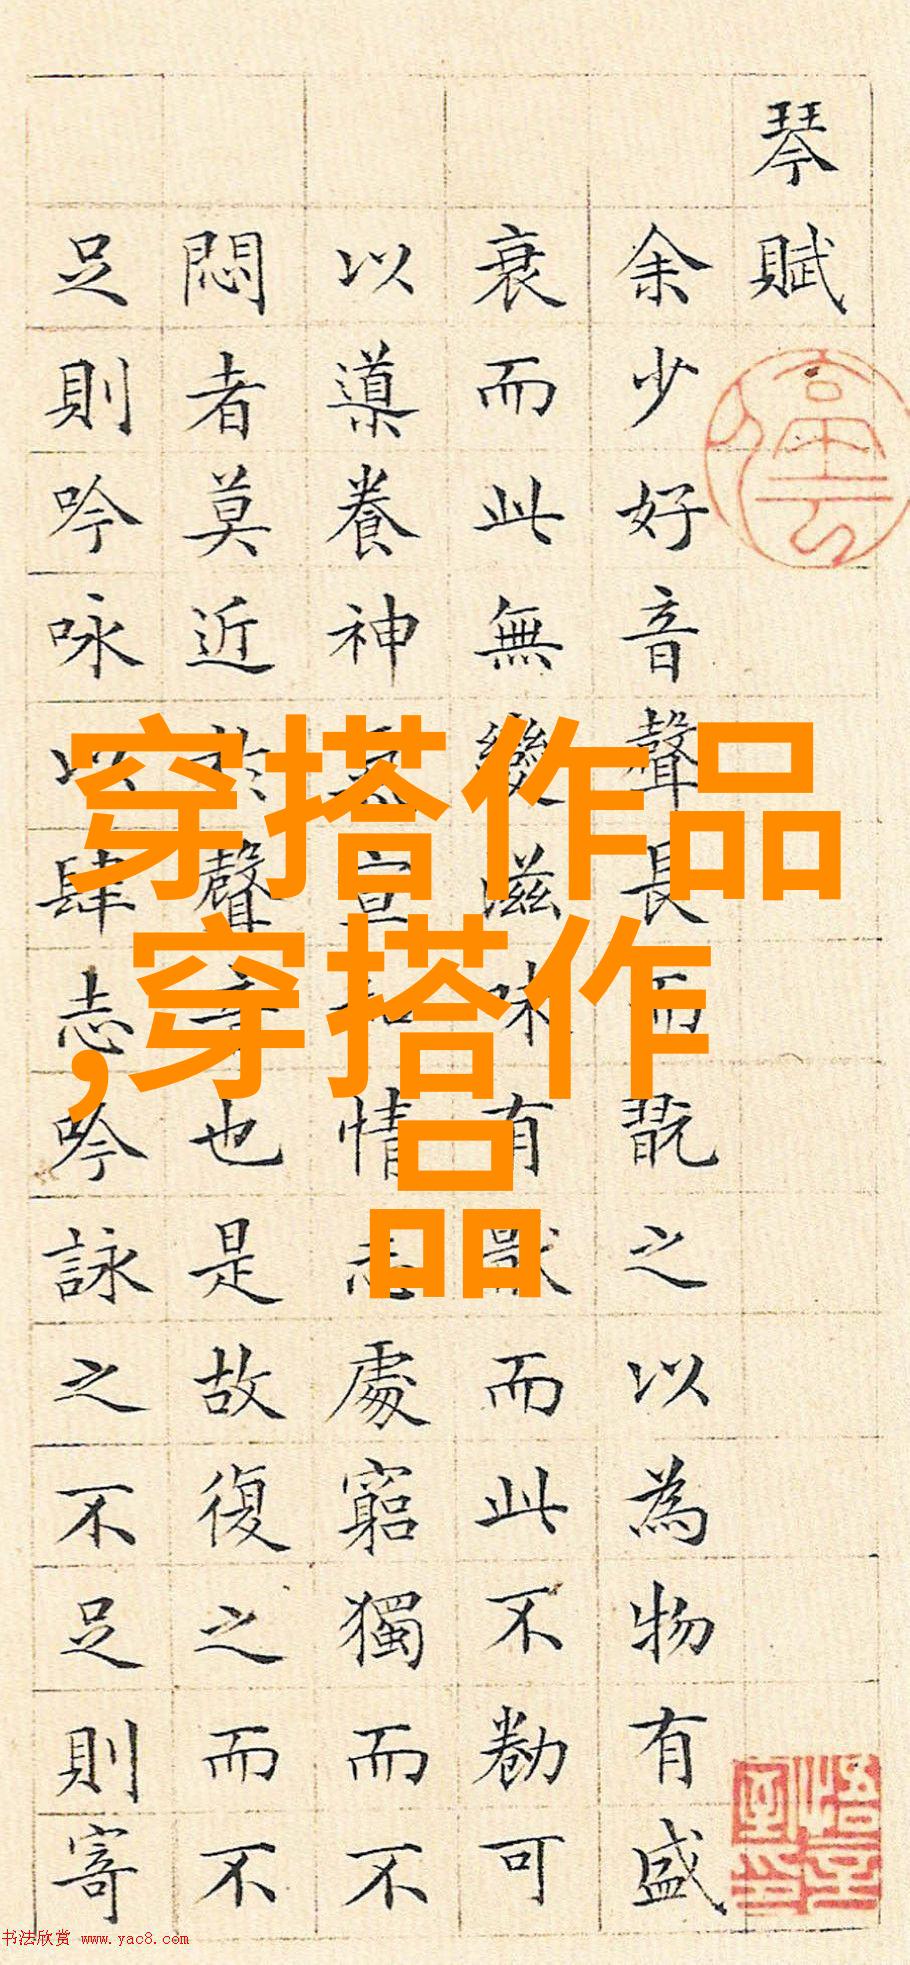 琴賦
余少好音聲長而翫之以為物有盛
衰而此無變滋味有猒而此不勌可
以導養神宣和情志處窮獨而不
悶者莫近於聲音也是故復之而不
足則吟咏以肆志吟詠之不足則寄
穿搭作品
,穿搭作
品
书法欣赏 www.yac8.com